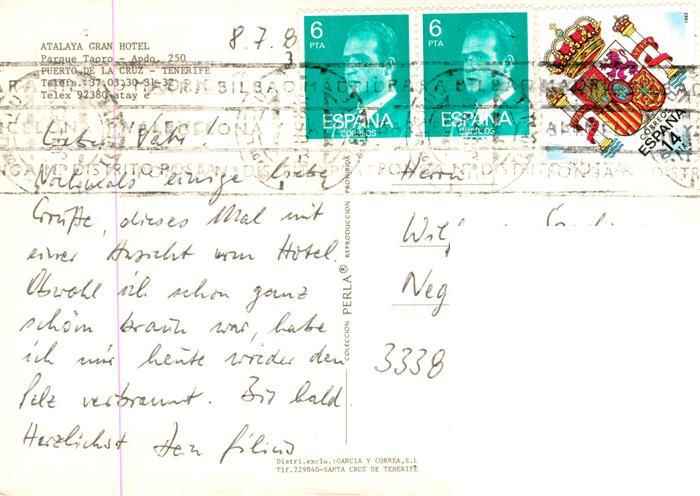 ATALAYA GRAN HOTEL
Parque Taoro - Apdo. 250
PUERTO DE LA CRUZ - TENERIFE
Telefs. 37.03.30-31-32
Telex 92380
8.7.8
6
PTA
ESPAÑA
CORREOS
6
PTA
ESPAÑA
CORREOS
CORREOS
ESPAÑA
14
Lieber Vati
Nochmals einige liebe
Grüße, dieses Mal mit
einer Ansicht vom Hotel.
Obwohl ich schon ganz
schön braun war, habe
ich mir heute wieder den
Pelz verbrannt. Bis bald
Herzlichst Dein
COLECCION PERLA® REPRODUCCION PROHIBIDA
Herrn
Neg
3338
Distri.exclu.:GARCIA Y CORREA,S.L
Tlf.229840-SANTA CRUZ DE TENERIFE